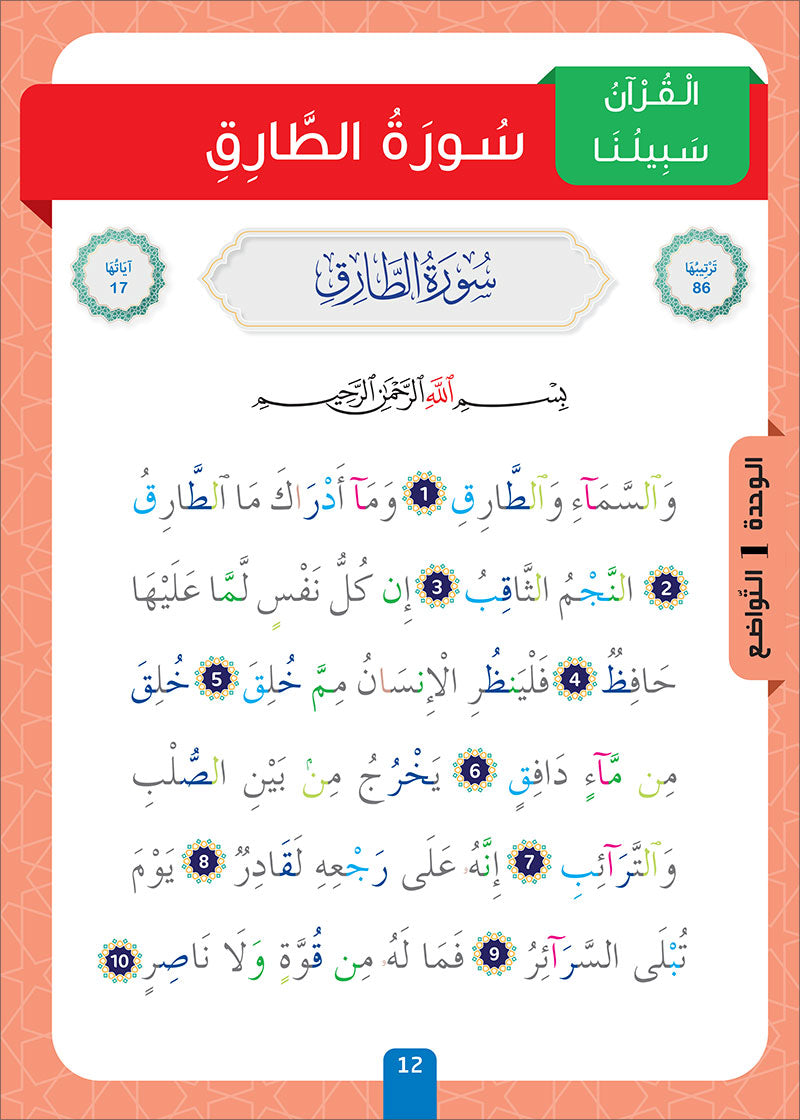 الْقُرْآنُ
سَبِيلُنَا
سُورَةُ الطَّارِقِ
تَرْتِيبُهَا
86
سُورَةُ الطَّارِقِ
آيَاتُهَا
17
بِسْمِ ٱللَّهِ ٱلرَّحْمَٰنِ ٱلرَّحِيمِ
وَٱلسَّمَآءِ وَٱلطَّارِقِ 1 وَمَآ أَدْرَاكَ مَا ٱلطَّارِقُ
2 النَّجْمُ الثَّاقِبُ 3 إِن كُلُّ نَفْسٍ لَّمَّا عَلَيْهَا
حَافِظٌ 4 فَلْيَنظُرِ الْإِنسَانُ مِمَّ خُلِقَ 5 خُلِقَ
مِن مَّآءٍ دَافِقٍ 6 يَخْرُجُ مِنۢ بَيْنِ الصُّلْبِ
وَٱلتَّرَآئِبِ 7 إِنَّهُۥ عَلَى رَجْعِهِ لَقَادِرٌ 8 يَوْمَ
تُبْلَى السَّرَآئِرُ 9 فَمَا لَهُۥ مِن قُوَّةٍ وَلَا نَاصِرٍ 10
الوحدة 1 التّواضع
12